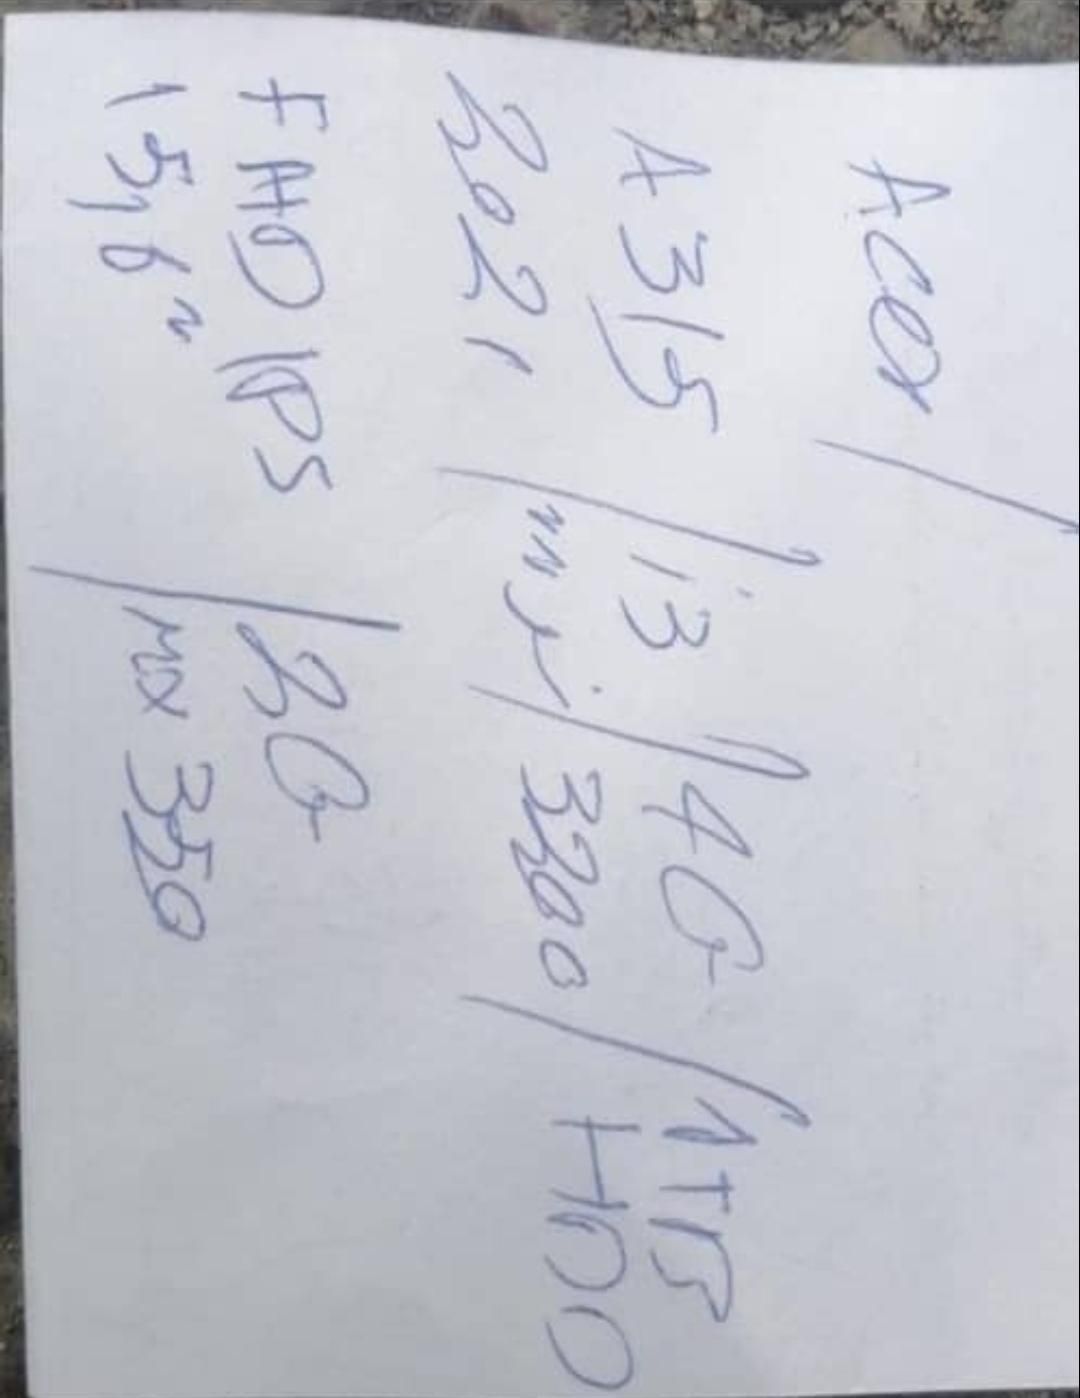 Acer /
A315 / i3 / 4G / 1TB
2021 / / 3200 / HDD
FHD IPS / 2G
15,6" / MX 350